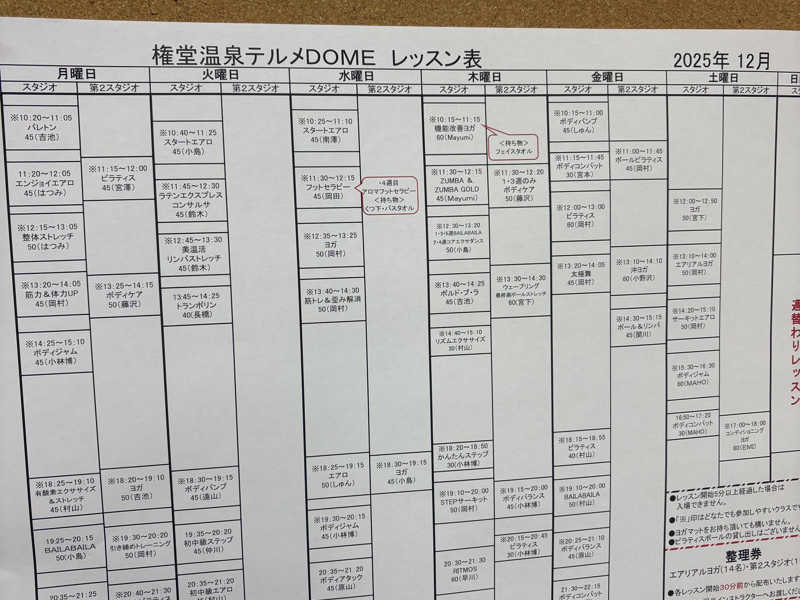 権堂温泉テルメDOME レッスン表
2025年 12月
月曜日
火曜日
水曜日
木曜日
金曜日
土曜日
日
スタジオ
第2スタジオ
スタジオ
第2スタジオ
スタジオ
第2スタジオ
スタジオ
第2スタジオ
スタジオ
第2スタジオ
スタジオ
第2スタジオ
※10:20～11:05
バレトン
45(吉池)
11:20～12:05
エンジョイエアロ
45(はつみ)
※12:15～13:05
整体ストレッチ
50(はつみ)
※13:20～14:05
筋力&体力UP
45(岡村)
※14:25～15:10
ボディジャム
45(小林博)
※18:25～19:10
有酸素エクササイズ
&ストレッチ
45(村山)
19:25～20:15
BAILABAILA
50(小島)
20:35～21:25
※11:15～12:00
ピラティス
45(宮澤)
※13:25～14:15
ボディケア
50(藤沢)
※18:20～19:10
ヨガ
50(吉池)
※19:30～20:20
引き締めトレーニング
50(岡村)
※20:40～21:30
※10:40～11:25
スタートエアロ
45(小島)
※11:45～12:30
ラテンエクスプレス
コンサルサ
45(鈴木)
※12:45～13:30
美温活
リンパストレッチ
45(鈴木)
13:45～14:25
トランポリン
40(長橋)
※18:30～19:15
ボディパンプ
45(遠山)
19:35～20:20
初中級ステップ
45(仲川)
20:35～21:20
初中級エアロ
※10:25～11:10
スタートエアロ
45(南澤)
※11:30～12:15
フットセラピー
45(岡田)
・4週目
アロマフットセラピー
<持ち物>
くつ下・バスタオル
※12:35～13:25
ヨガ
50(岡村)
※13:40～14:30
筋トレ&歪み解消
50(岡村)
※18:25～19:15
エアロ
50(しゅん)
※19:30～20:15
ボディジャム
45(小林博)
20:35～21:20
ボディアタック
45(原山)
※18:30～19:15
ヨガ
45(小島)
※10:15～11:15
機能改善ヨガ
60(Mayumi)
<持ち物>
フェイスタオル
※11:30～12:15
ZUMBA &
ZUMBA GOLD
45(Mayumi)
※12:30～13:20
1・3・5週BAILABAILA
2・4週コアエクサダンス
50(小島)
※13:40～14:25
ポルド・ブラ
45(吉池)
※14:40～15:10
リズムエクササイズ
30(村山)
※18:20～18:50
かんたんステップ
30(小林博)
※19:10～20:00
STEPサーキット
50(岡村)
20:30～21:30
RITMOS
60(早川)
※11:30～12:20
1・3週のみ
ボディケア
50(藤沢)
※13:30～14:30
ウェーブリング
60(宮下)
※19:15～20:00
ボディバランス
45(小林博)
※20:15～20:45
ピラティス
30(小林博)
※10:15～11:00
ボディパンプ
45(しゅん)
※11:15～11:45
ボディコンバット
30(宮本)
※12:00～13:00
ピラティス
60(岡村)
※13:20～14:05
太極舞
45(岡村)
※18:15～18:55
ピラティス
40(村山)
※19:10～20:00
BAILABAILA
50(村山)
※20:25～21:10
ボディバランス
45(原山)
21:30～22:15
ボディコンバット
※11:00～11:45
ポールピラティス
45(岡村)
※13:10～14:10
沖ヨガ
60(小野沢)
※14:30～15:15
ポール&リンパ
45(関川)
※12:00～12:50
ヨガ
50(宮下)
※13:10～14:00
エアリアルヨガ
50(岡村)
※14:20～15:10
サーキットエアロ
50(岡村)
※15:30～16:30
ボディジャム
60(MAHO)
16:50～17:20
ボディコンバット
30(MAHO)
※17:00～18:00
コンディショニング
ヨガ
60(EMI)
週替わりレッスン
●レッスン開始5分以上経過した場合は
入場できません。
●「※」印はどなたでも参加しやすいクラスです
●ヨガマットをお持ち頂いても構いません。
●ピラティスボールの貸し出しはございません
整理券
エアリアルヨガ(14名)・第2スタジオ(1
●各レッスン開始30分前から配布いたします